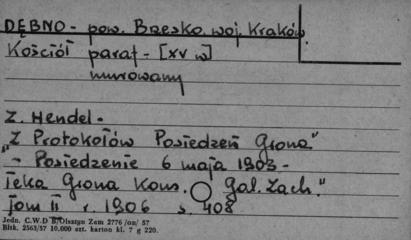 DĘBNO - pow. Brzesko, woj. Kraków.
Kościół paraf - [XV w]
murowany
Z. Hendel -
„Z Protokołów Posiedzeń Grona"
- Posiedzenie 6 maja 1903 -
Teka Grona Kons. Gal. Zach."
Tom II r. 1906 s. 408
Jedn. C.W.D B/Olsztyn Zam 2776 /on/ 57
Bltk. 2563/57 10.000 szt. karton kl. 7 g 220.